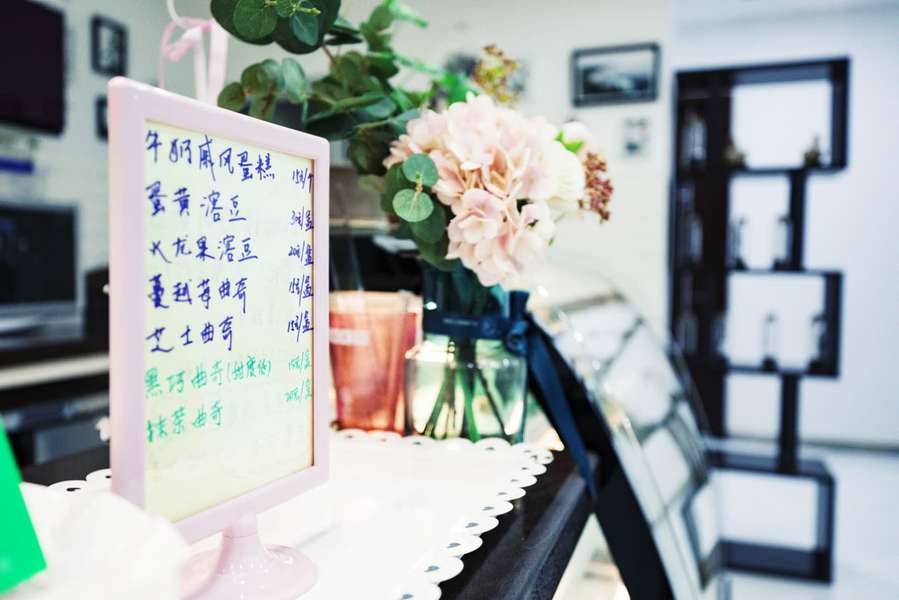 牛奶戚风蛋糕 15元/个
蛋黄溶豆 30元/盒
火龙果溶豆 20元/盒
蔓越莓曲奇 18元/盒
芝士曲奇 18元/盒
黑巧曲奇(甜度低) 15元/盒
抹茶曲奇 20元/盒